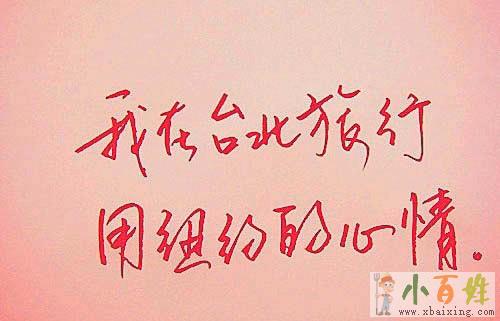 我在台北旅行
用纽约的心情。
小百姓
www.xbaixing.com